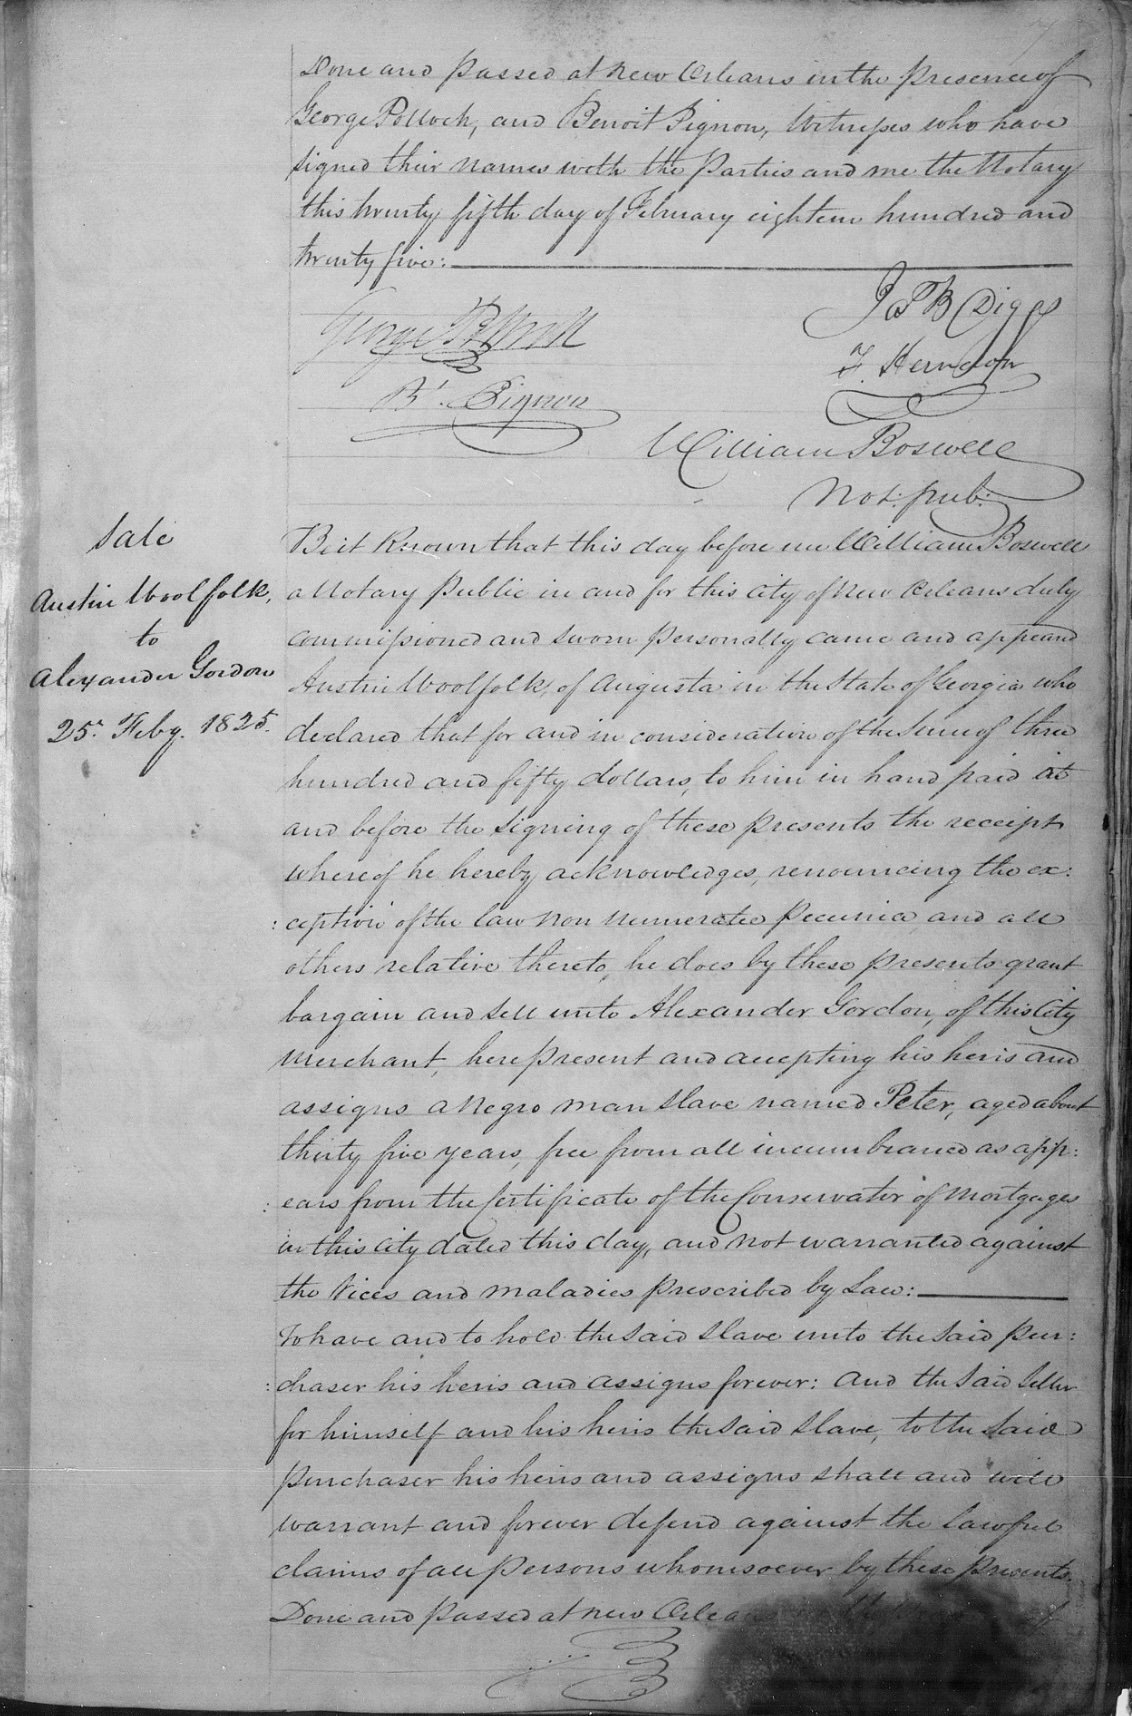 Done and passed at New Orleans in the presence of
George Pollock, and Benoit Pignon, Witnesses who have
signed their names with the Parties and me the Notary
this twenty fifth day of February eighteen hundred and
twenty five:
J P B Diggs
George Pollock
F. Herndon
Bt. Pignon
William Boswell
Not: pub:
Sale
Austin Woolfolk,
to
Alexander Gordon
25. Feby. 1825.
Be it Known that this day before me William Boswell
a Notary Public in and for this City of New Orleans duly
commissioned and sworn personally came and appeared
Austin Woolfolk, of Augusta in the State of Georgia who
declared that for and in consideration of the Sum of three
hundred and fifty dollars, to him in hand paid at
and before the signing of these presents the receipt
whereof he hereby acknowledges, renouncing the ex:
:ception of the law non numerata pecunia and all
others relative thereto, he does by these presents grant
bargain and sell unto Alexander Gordon, of this City
Merchant, here present and accepting his heris and
assigns a negro man slave named Peter, aged about
thirty five years, free from all incumbrance as app:
:ears from the Certificate of the Conservator of Mortgages
in this City dated this day, and not warranted against
the Vices and maladies prescribed by Law:
To have and to hold the said slave unto the said pur:
:chaser his heris and assigns forever: And the said Seller
for himself and his heris the said slave, to the said
purchaser his heris and assigns shall and will
warrant and forever defend against the lawful
claims of all persons whomsoever by these presents.
Done and passed at New Orleans